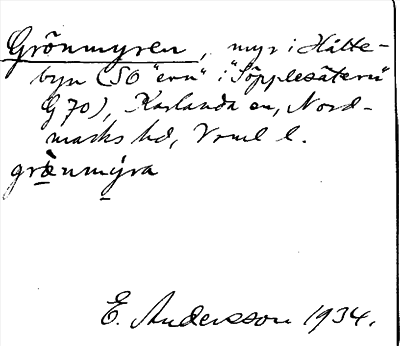 Grönmyren, myr i Hålte-
byn (SO "ern" i "Söpplesätern"
G 70), Karlanda sn, Nord-
marks hd, Vrml l.
grø̀nmýra
E. Andersson 1934.